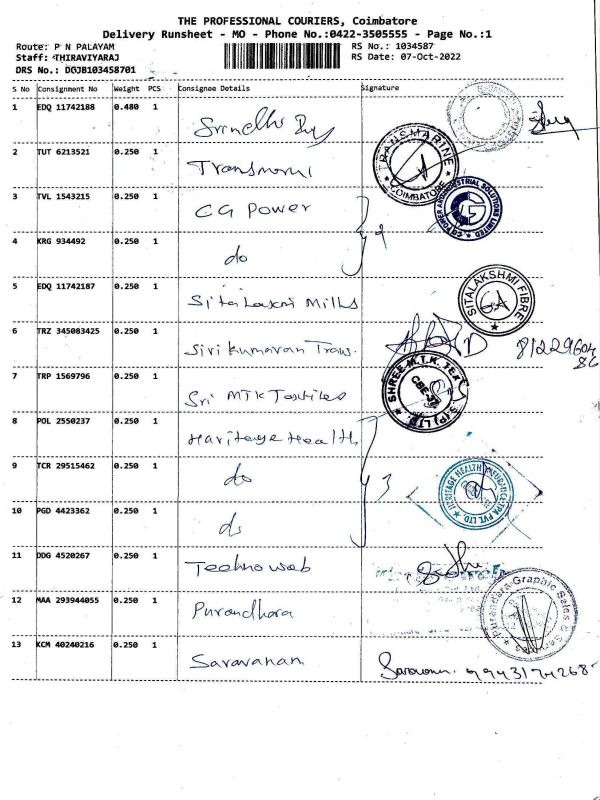 THE PROFESSIONAL COURIERS, Coimbatore
Delivery Runsheet - MO - Phone No.:0422-3505555 - Page No.:1
Route: P N PALAYAM RS No.: 1034587
Staff: THIRAVIYARAJ RS Date: 07-Oct-2022
DRS No.: DGJB103458701
S No Consignment No Weight PCS Consignee Details Signature
1 EDQ 11742188 0.480 1
2 TUT 6213521 0.250 1 Transmarni
TRANSMARINE COIMBATORE
3 TVL 1543215 0.250 1 CG Power
CG POWER AND INDUSTRIAL SOLUTIONS LIMITED
4 KRG 934492 0.250 1 do
5 EDQ 11742187 0.250 1 Sitalaxmi Mills
SITALAKSHMI FIBRE
6 TRZ 345083425 0.250 1 Sirikumaran Trans. 8122960486
7 TRP 1569796 0.250 1 Sri MTK Textiles
SHREE M.T.K. TEX S (P) LTD
CBE-37
8 POL 2550237 0.250 1 Haritage Health
9 TCR 29515462 0.250 1 do 3
HERITAGE HEALTH INSURANCE TPA PVT. LTD.
10 PGD 4423362 0.250 1 do
11 DDG 4520267 0.250 1 Technoweb
12 MAA 293944055 0.250 1 Purandhara
Purandara Graphic Sales & Services
13 KCM 40240216 0.250 1 Saravanan Saravanan. 9943174268